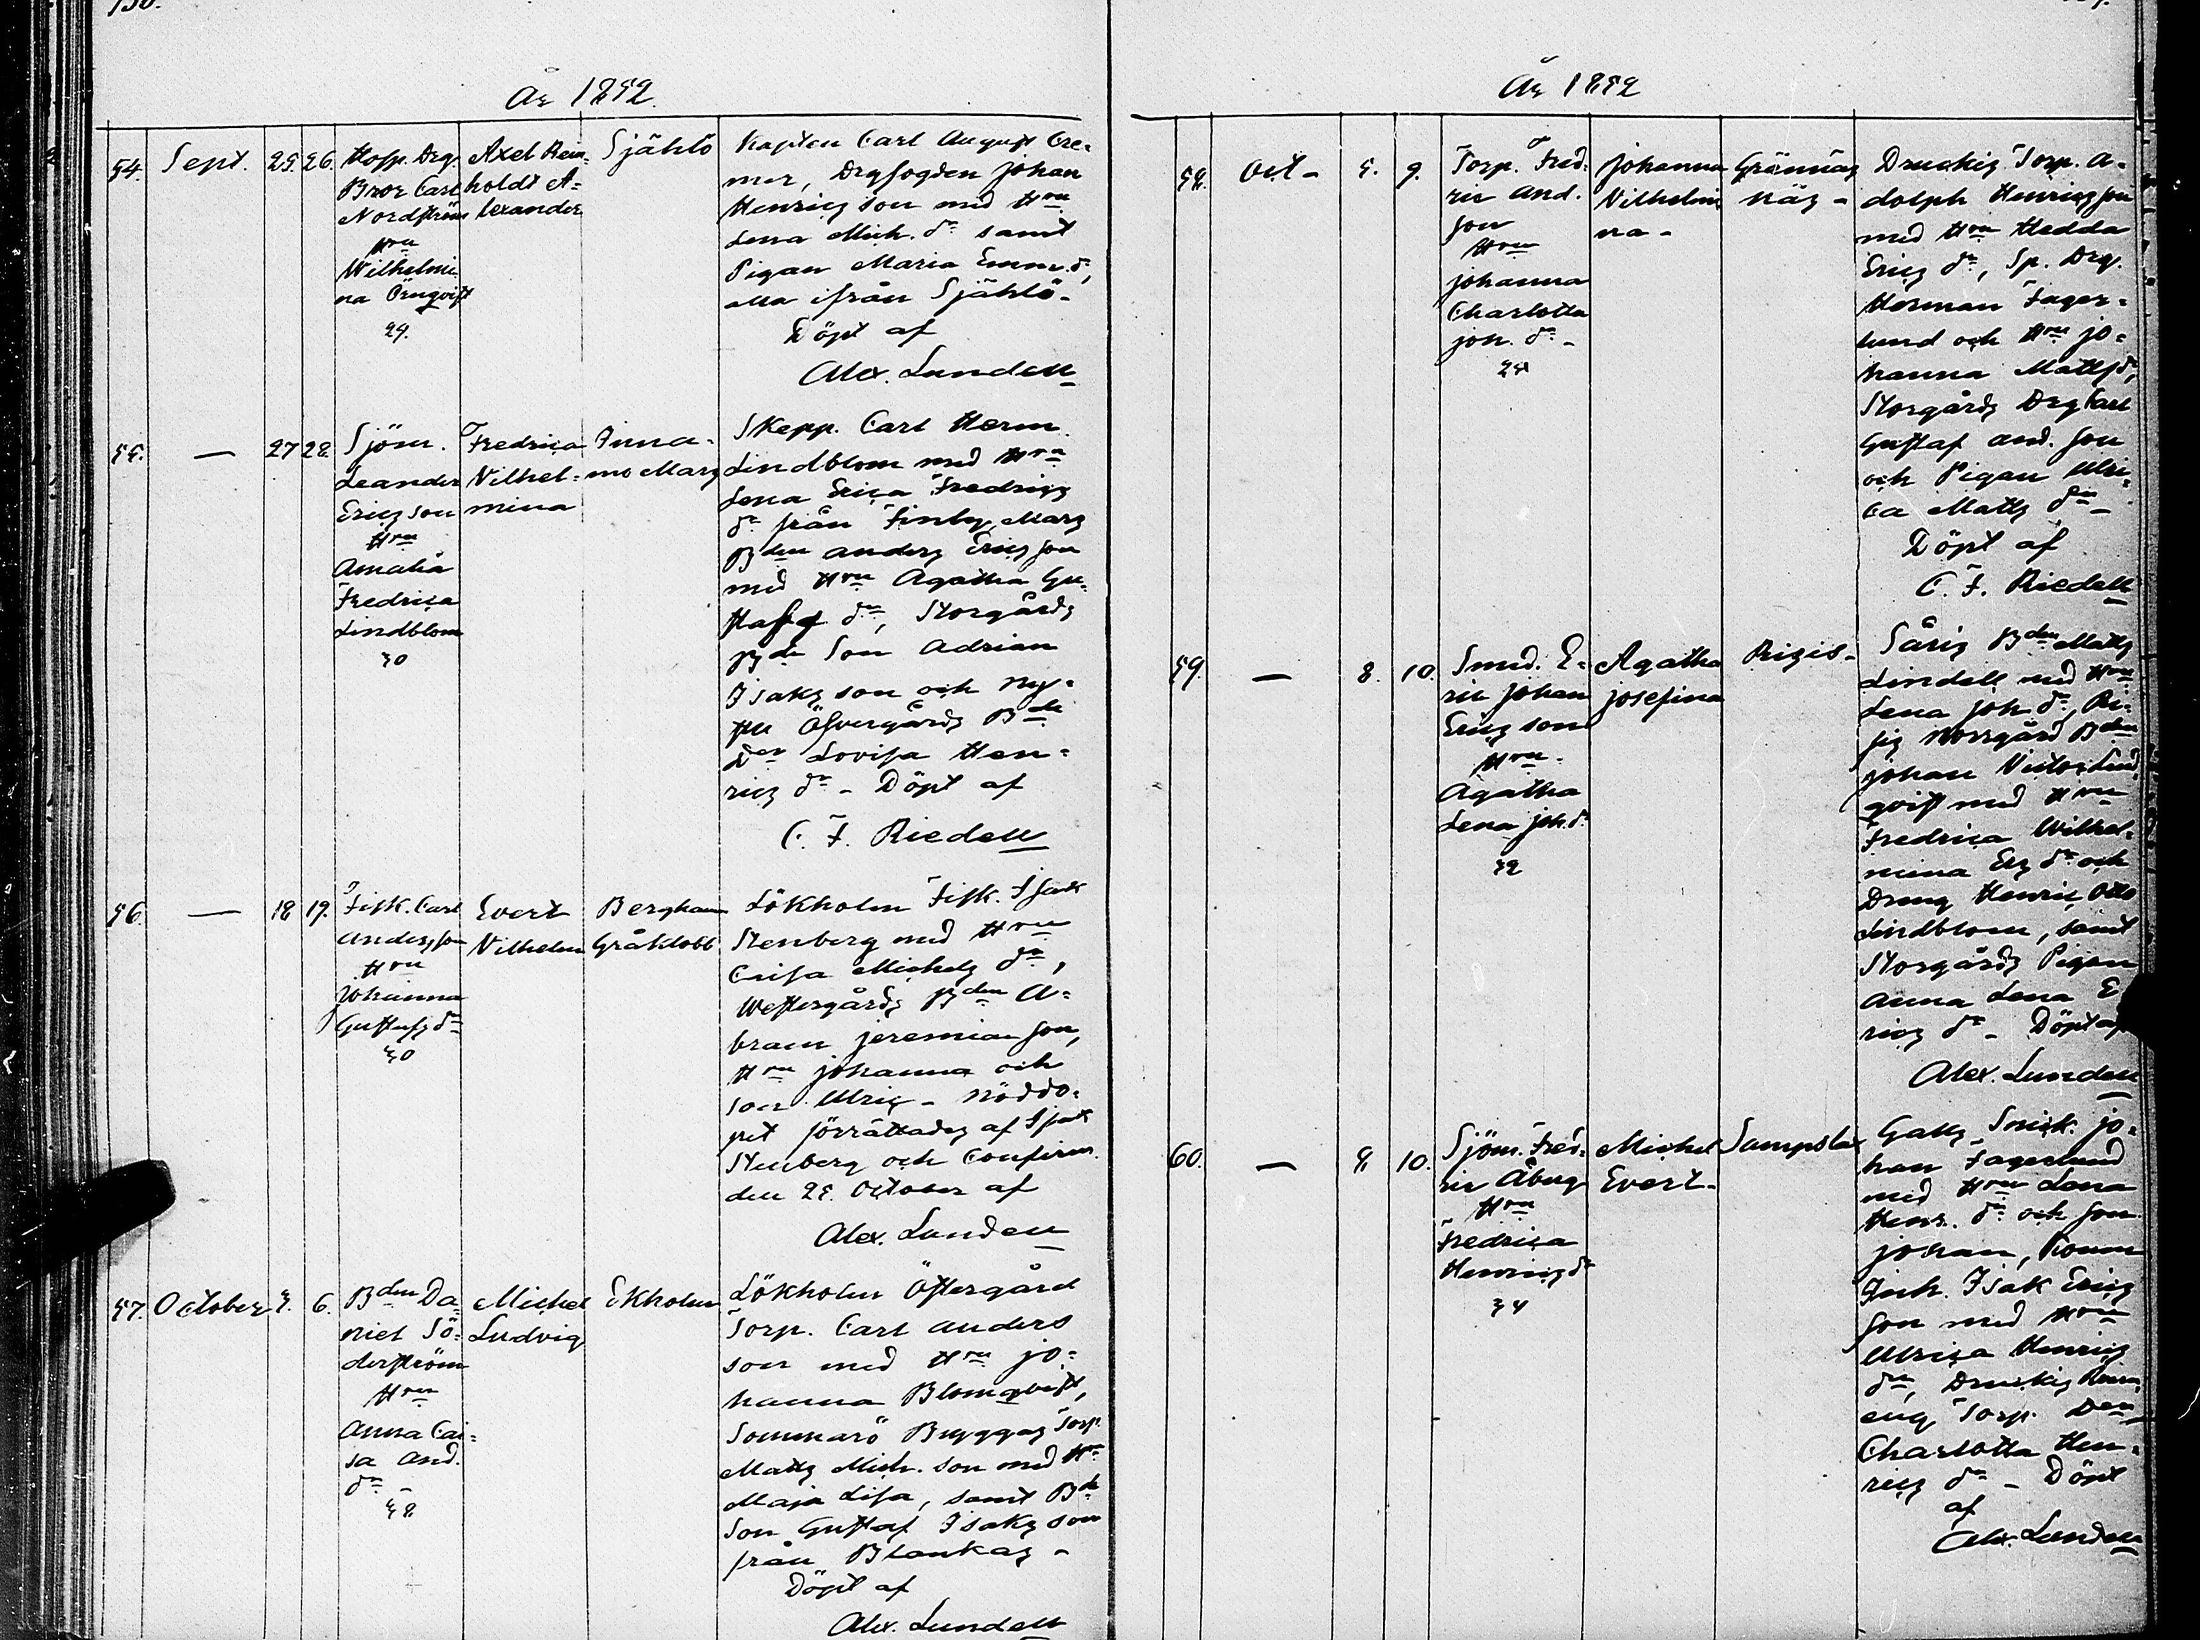 År 1852.
54. Sept. 25. 26.
Hosp. Drg.
Bror Carl
Nordström
Hru
Wilhelmi
na Örnqvist
29.
Axel Rein-
holdt A-
lexander
Själö
Kapten Carl August Cre-
mer, Drgfogden Johan
Henricsson med Hru
Lena Mich. dr samt
Pigan Maria Emm. dr,
alla ifrån Själö -
Döpt af
Alex. Lundell
55. — 27 28
Sjöm.
Leander
Ericsson
Hru
Amalia
Fredrica
Lindblom
30
Fredrica
Vilhel-
mina
Skepp. Carl Herm.
Lindblom med Hru
Lena Erica Fredrics
dr från Finby,
Bden Anders Ericsson
med Hru Agatha Gu-
stafs dr, Storgårds
Bde Son Adrian
Isaksson och Ny-
Öfvergårds Bde
Dr Lovisa Hen-
rics dr - Döpt af
C. F. Riedell
56. — 18 19.
Fisk. Carl
Andersson
Hru
Johanna
Gustafs dr
30
Evert
Vilhelm
Berghamn
Gråklobb
Lökholm Fisk. Isak
Stenberg med Hru
Cajsa Michels dr,
Westergårds Bden A-
bram Jeremiasson,
Hru Johanna och
son Ulric - Nöddo-
pet förrättades af Isak
Stenberg och Confirm.
den 25. October af
Alex. Lundell
57. October 3. 6.
Bden Da-
niel Sö-
derström
Hru
Anna Cai-
sa And.
dr -
38
Michel
Ludvig
Ekholm
Lökholm Östergård
Torp. Carl Anders
son med Hru Jo-
hanna Blomqvist,
Sommarö Byggas Torp.
Matts Mich. son med Hru
Maja Lisa, samt Bde
Son Gustaf Isaksson
från Blankas -
Döpt af
Alex. Lundell
År 1852
58. Oct - 5. 9.
Torp. Fred-
ric And.
son
Hru
Johanna
Charlotta
Joh. dr -
24
Johanna
Vilhelmi
na -
Grännäs
näs -
Druckis Torp. A-
dolph Henricsson
med Hru Hedda
Erics dr, Sp. Drg.
Herman Fager-
lund och Hru Jo-
hanna Matts dr,
Storgårds Drg Carl
Gustaf And. son
och Pigan Ulri-
ca Matts dr -
Döpt af
C. F. Riedell
59. — 8. 10.
Smed. E-
ric Johan
Ericsson
Hru.
Agatha
Lena Joh. dr
32
Agatha
Josefina
Risis -
Såris Bden Matts
Lindell med Hru
Lena Joh. dr, Ri-
sis Norrgård Bden
Johan Victor Lind-
qvist med Hru
Fredrica Wilhel-
mina Ers dr och
Dreng Henric Otto
Lindblom, samt
Storgårds Pigan
Anna Lena E
rics dr - Döpt af
Alex. Lundell
60. — 8. 10.
Sjöm. Fred-
ric Åberg
Hru
Fredrica
Henrics dr
34
Michel
Evert -
Sampslax
Galts Snick. Jo-
han Fagerlund
med Hru Lena
Henr. dr och son
Johan,
Inh. Isak Erics
son med Hru
Ulrica Henrics
dr, Druckis
Torp. Den
Charlotta Hen-
rics dr - Döpt
af
Alex. Lundell